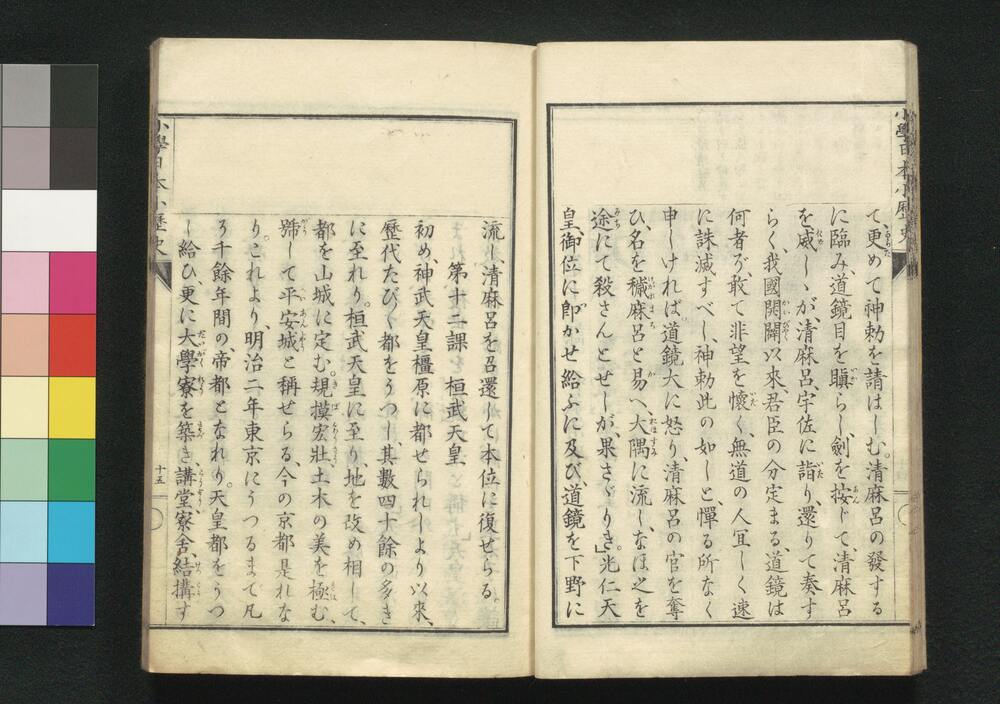 小學日本小歷史
て、更めて神勅を請はしむ。清麻呂の發する
に臨み道鏡目を瞋らし劍を按じて、清麻呂
を威しゝが、清麻呂、宇佐に詣り、還りて奏す
らく、我國開闢以來、君臣の分定まる、道鏡は
何者ぞ、敢て非望を懷く、無道の人宜しく速
に誅滅すべし、神勅此の如しと、憚る所なく
申しければ、道鏡大に怒り、清麻呂の官を奪
ひ、名を穢麻呂と易へ、大隅に流し、なほ之を
途にて殺さんとせしが、果さゞりき。」光仁天
皇、御位に即かせ給ふに及び道鏡を下野に
流し、清麻呂を召還して本位に復せらる。
第十二課 桓武天皇
初め、神武天皇橿原に都せられしより以來、
歷代たびゞ都をうつし、其數四十餘の多き
に至れり。桓武天皇に至り、地を改め相して、
都を山城に定む。規摸宏壯、土木の美を極む、
號して平安城と稱せらる、今の京都是れな
り。これより、明治二年東京にうつるまで凡
そ千餘年間の帝都となれり。天皇都をうつ
し給ひ、更に大學寮を築き講堂寮舍、結搆す
小學日本小歷史
十五